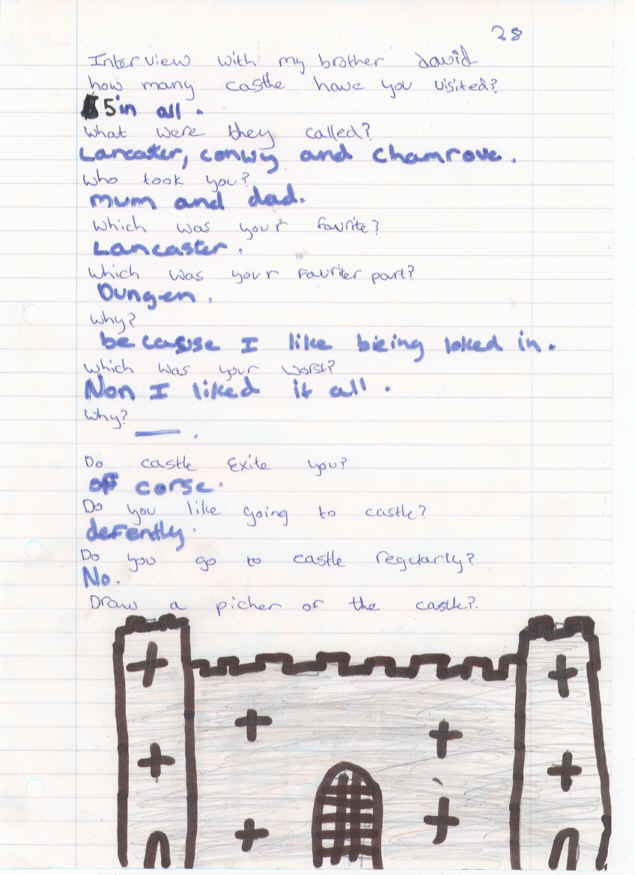 28
Interview with my brother david
how many castle have you visited?
5 in all.
What were they called?
Lancaster, conwy and chamrove.
Who took you?
mum and dad.
Which was your favrite?
Lancaster.
Which was your Favriter part?
Dungen.
Why?
becasuse I like bieing loked in.
Which was your worst?
Non I liked it all.
Why?
— .
Do castle Exite you?
of corse.
Do you like going to castle?
defently.
Do you go to castle regularly?
No.
Draw a picher of the castle?